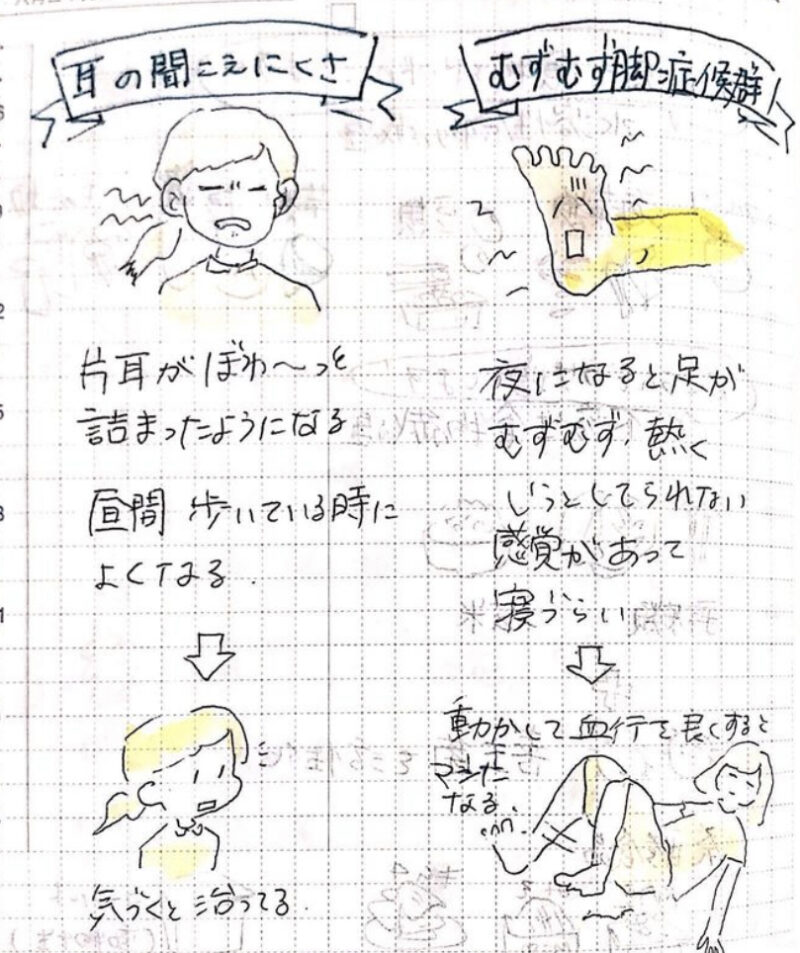 耳の聞こえにくさ
片耳がぼわ〜っと
詰まったようになる
昼間 歩いている時に
よくなる.
気づくと治ってる.
むずむず脚症候群
夜になると足が
むずむず・熱く
じっとしてられない
感覚があって
寝づらい
動かして血行を良くすると
マシに
なる.